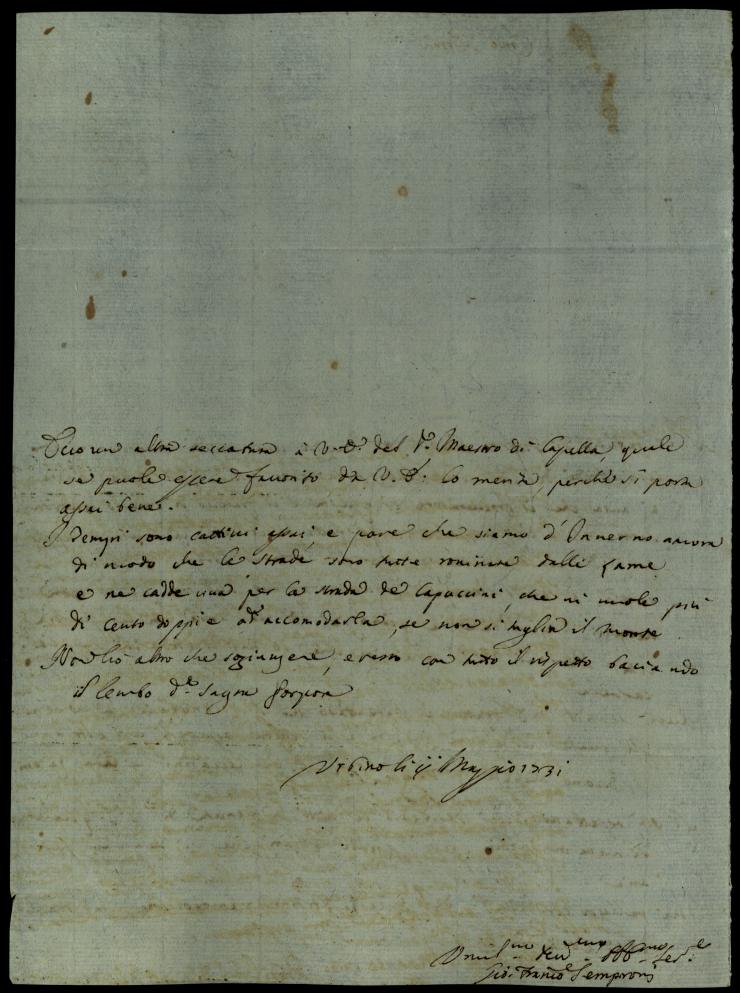 Ecco un altra seccatura à V. E. del Sr. Maestro di Capella, quale
se puole essere favorito da V. E. lo merita, perche si porta
assai bene.
I Tempi sono cattivi assai, e pare che siamo d'Inverno ancora
di modo che le strade sono tutte rovinate dalle
e ne cadde una per la strada de Capuccini, che vi vuole più
di cento doppie ad accomodarla, se non si taglia il monte
Non hò altro che sogiungere, e resto con tutto il rispetto baciando
il lembo della Sagra Porpora
Urbino li Maggio 1731
Umilmo Devmo Obbmo Serre
Gio: Franco Semproni